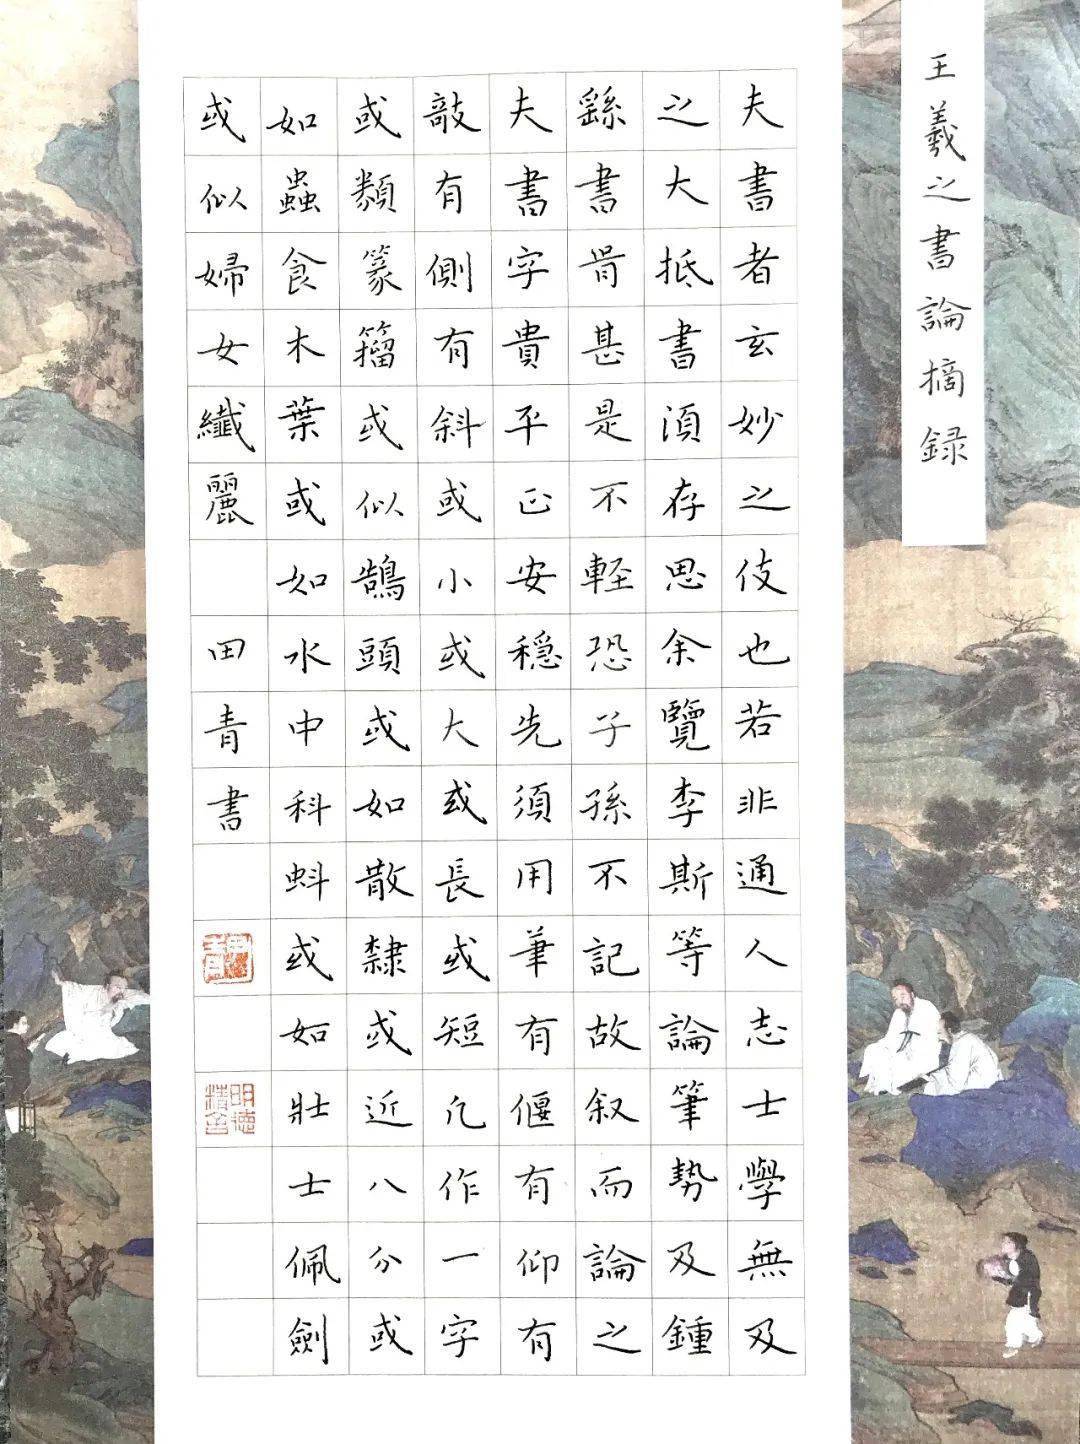 王羲之書論摘録
夫書者玄妙之伎也若非通人志士學無及
之大抵書須存思余覽李斯等論筆勢及鍾
繇書骨甚是不輕恐子孫不記故叙而論之
夫書字貴平正安穩先須用筆有偃有仰有
敧有側有斜或小或大或長或短凡作一字
或類篆籀或似鵠頭或如散隸或近八分或
如蟲食木葉或如水中科蚪或如壯士佩劍
或似婦女纖麗
田青書
明德精舍